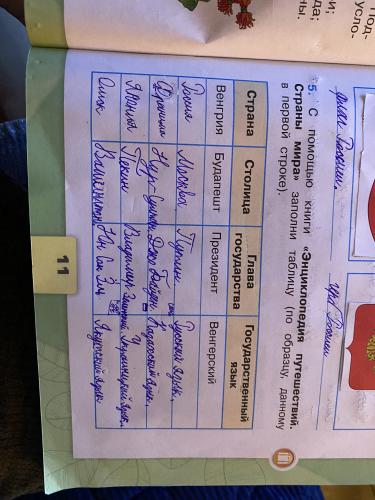 Под-
усло-
и;
да;
ны.
флаг России. герб России
5. С помощью книги «Энциклопедия путешествий.
Страны мира» заполни таблицу (по образцу, данному
в первой строке).
Страна Столица Глава государства Государственный язык
Венгрия Будапешт Президент Венгерский
Россия Москва Путин Русский язык,
Франция Нур-Султан Джо Байден Казахский язык,
Япония Пекин Владимир Украинский язык.
США Вашингтон язык
11